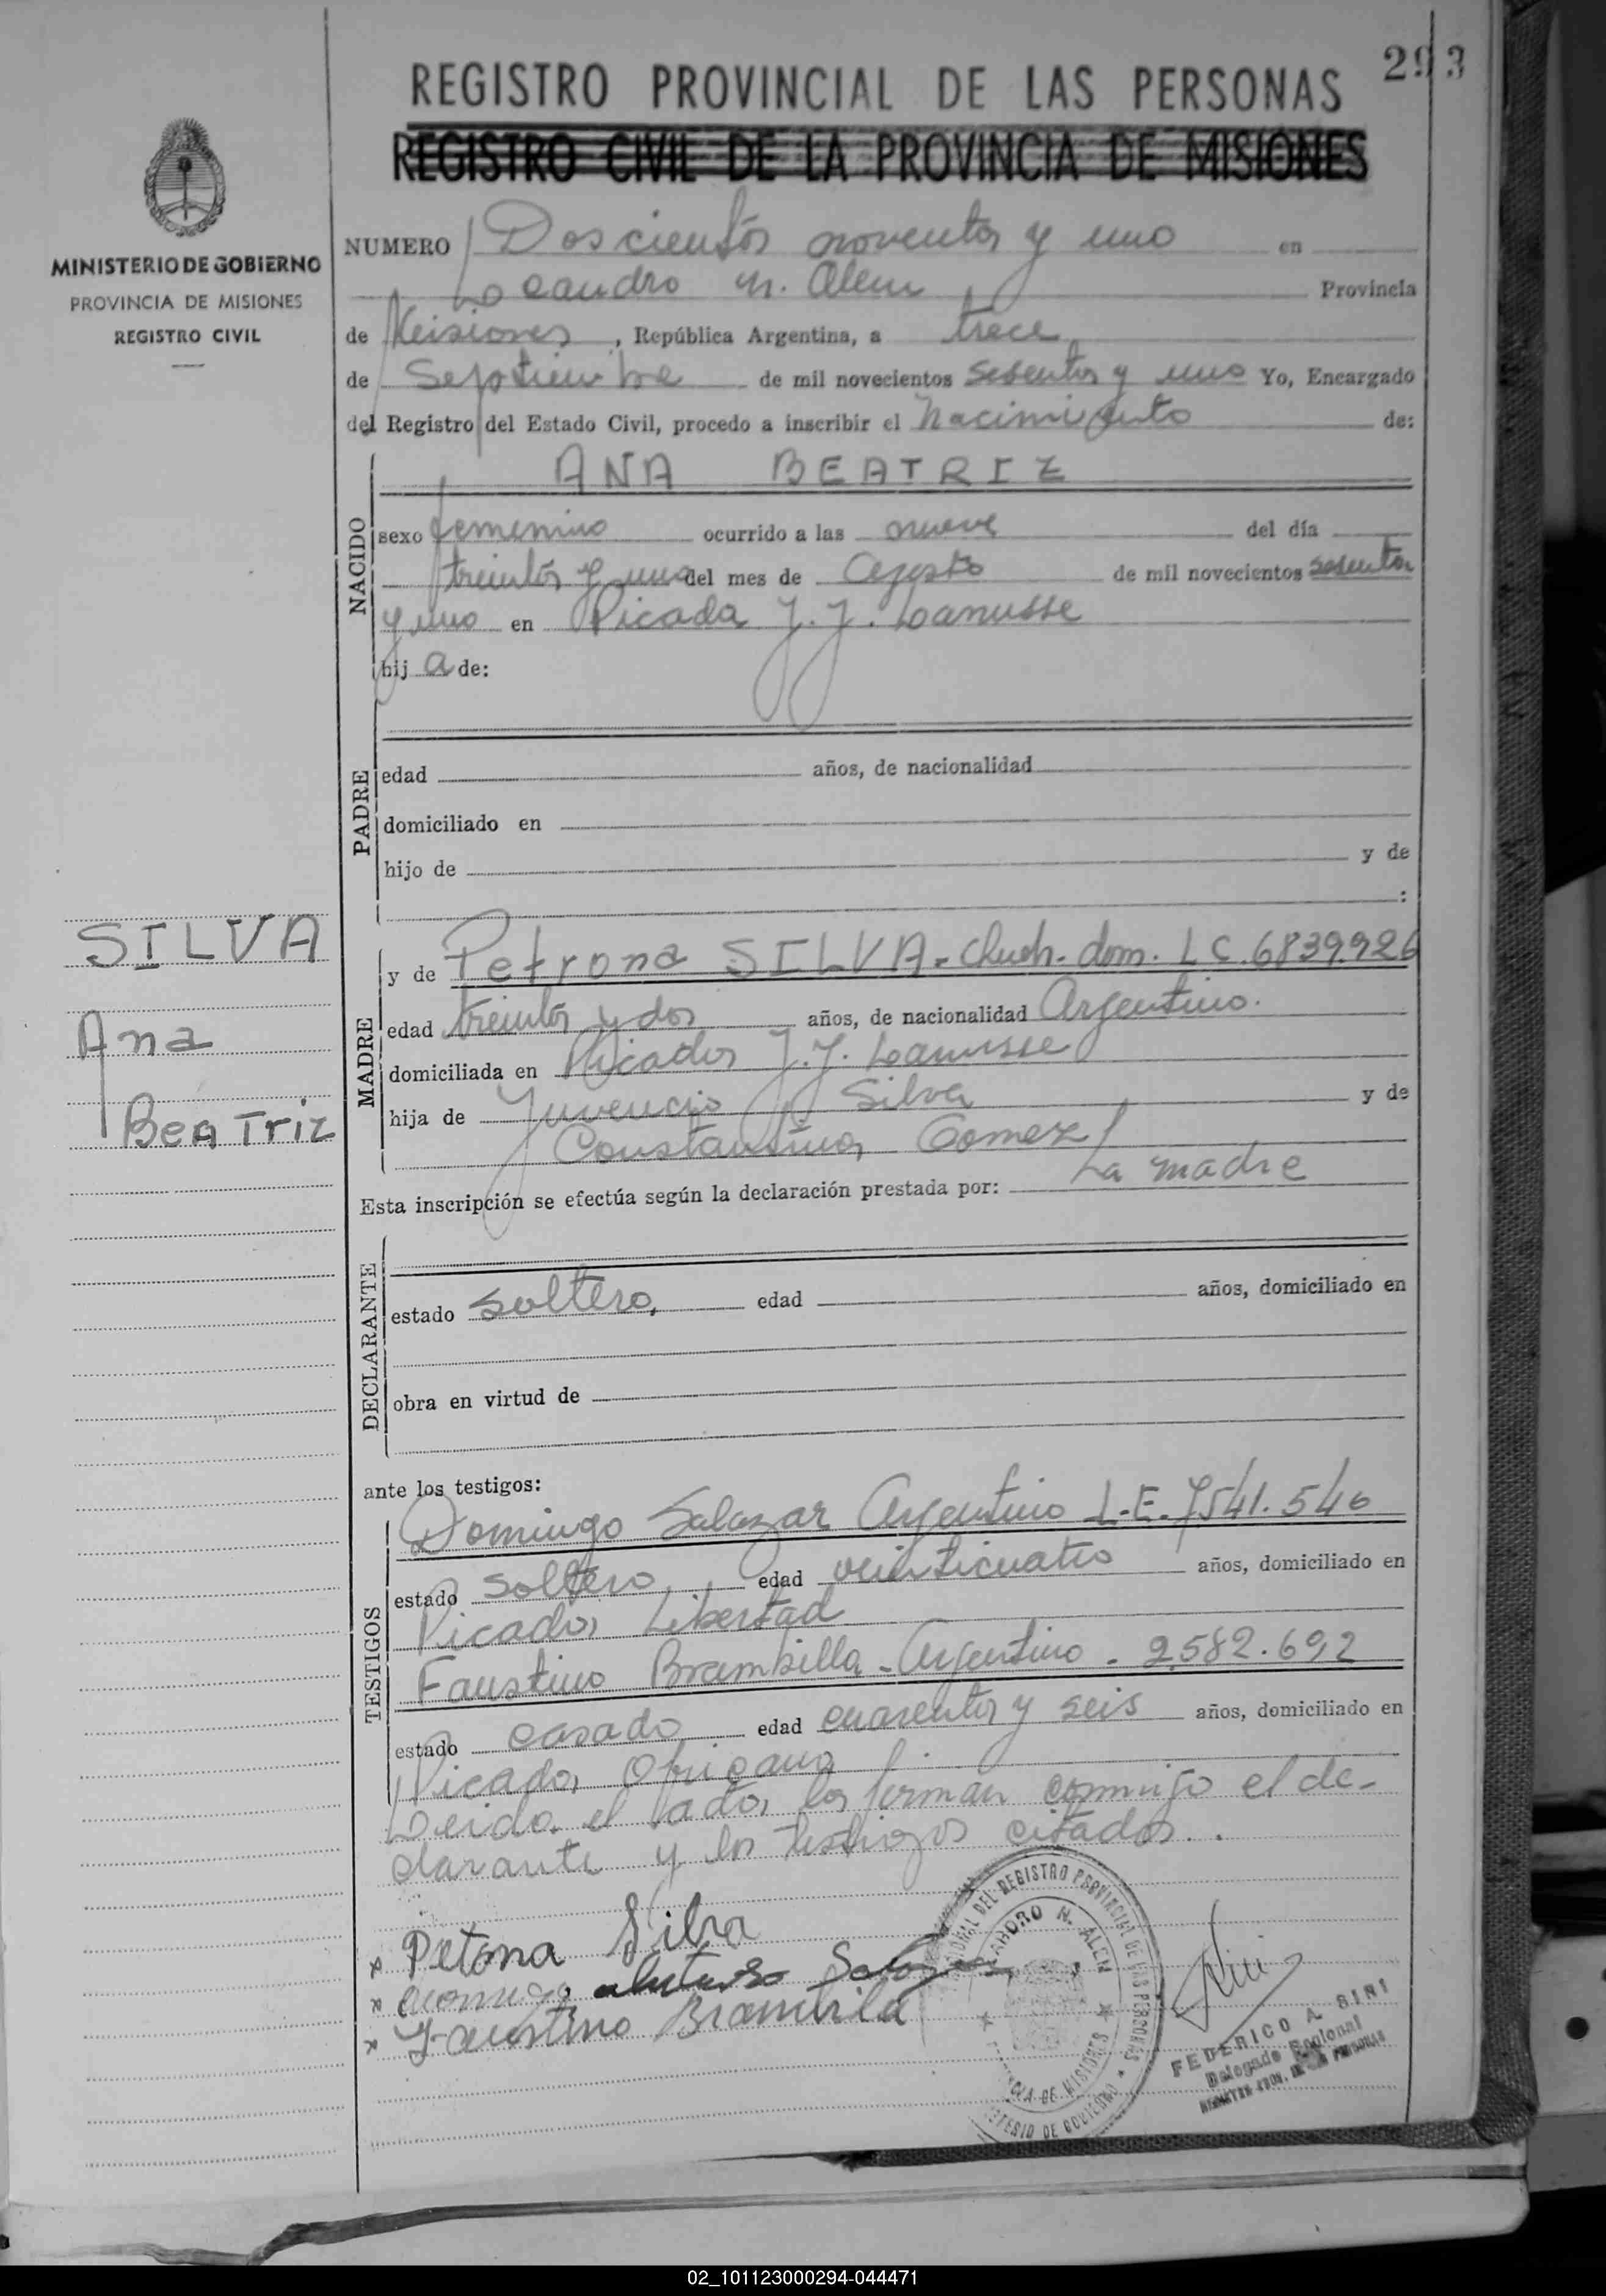 293
REGISTRO PROVINCIAL DE LAS PERSONAS
REGISTRO CIVIL DE LA PROVINCIA DE MISIONES
MINISTERIO DE GOBIERNO
PROVINCIA DE MISIONES
REGISTRO CIVIL
NUMERO Doscientos noventa y uno en
Leandro N. Alem Provincia
de Misiones, República Argentina, a trece
de Septiembre de mil novecientos sesenta y uno Yo, Encargado
del Registro del Estado Civil, procedo a inscribir el Nacimiento de:
NACIDO
ANA BEATRIZ
sexo femenino ocurrido a las nueve del día
treinta y uno del mes de Agosto de mil novecientos sesenta
y uno en Picada J. J. Lanusse
hij a de:
PADRE
edad años, de nacionalidad
domiciliado en
hijo de y de
:
SILVA
Ana
Beatriz
MADRE
y de Petrona SILVA - dom. L C. 6839.926
edad treinta y dos años, de nacionalidad Argentina.
domiciliada en Picada J. J. Lanusse
hija de Juvencio Silva y de
Constantina Gomez
Esta inscripción se efectúa según la declaración prestada por: La madre
DECLARANTE
estado soltera, edad años, domiciliado en
obra en virtud de
ante los testigos:
TESTIGOS
Domingo Salazar Argentino L.E. 7541.540
estado soltero edad veinticuatro años, domiciliado en
Picada Libertad
Faustino Brambilla - Argentino - 2582.692
estado casado edad cuarenta y seis años, domiciliado en
Picada
Leida el acta, la firman conmigo el de-
clarante y los testigos citados..
x Petrona Silva
x
x Faustino Brambila
DEL REGISTRO PROVINCIAL DE LAS PERSONAS
LEANDRO N. ALEM
DE MISIONES
DE GOBIERNO
FEDERICO A. SIRI
Delegado Regional
02_101123000294-044471